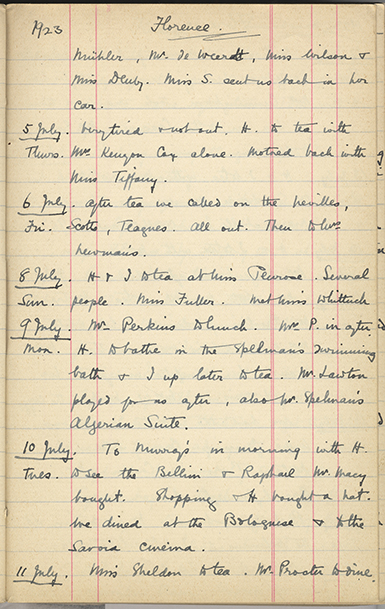 1923 Florence.
Mühler, Mr. de Weerdt, Miss Wilson &
Miss Denby. Miss S. sent us back in her
car.
5 July. Very tired & not out. H. to tea with
Thurs. Mrs Kenyon Cox alone. Motored back with
Miss Tiffany.
6 July. After tea we called on the Nevilles,
Fri. Scotts, Teagnes. All out. Then to Mrs
Newman's.
8 July. H & I to tea at Miss Penrose. Several
Sun. people. Miss Fuller. Met Miss Whittuck
9 July. Mr. Perkins to lunch. Mrs P. in after.
Mon. H. to bathe in the Spelman's swimming
bath & I up later to tea. Mr. Lawton
played for us after, also Mr. Spelman's
Algerian Suite.
10 July. To Murray's in morning with H.
Tues. to see the Bellini & Raphael Mr. Macy
bought. Shopping & H bought a hat.
We dined at the Bolognese & to the
Savoia cinema.
11 July. Miss Sheldon to tea. Mr. Procter to dine.